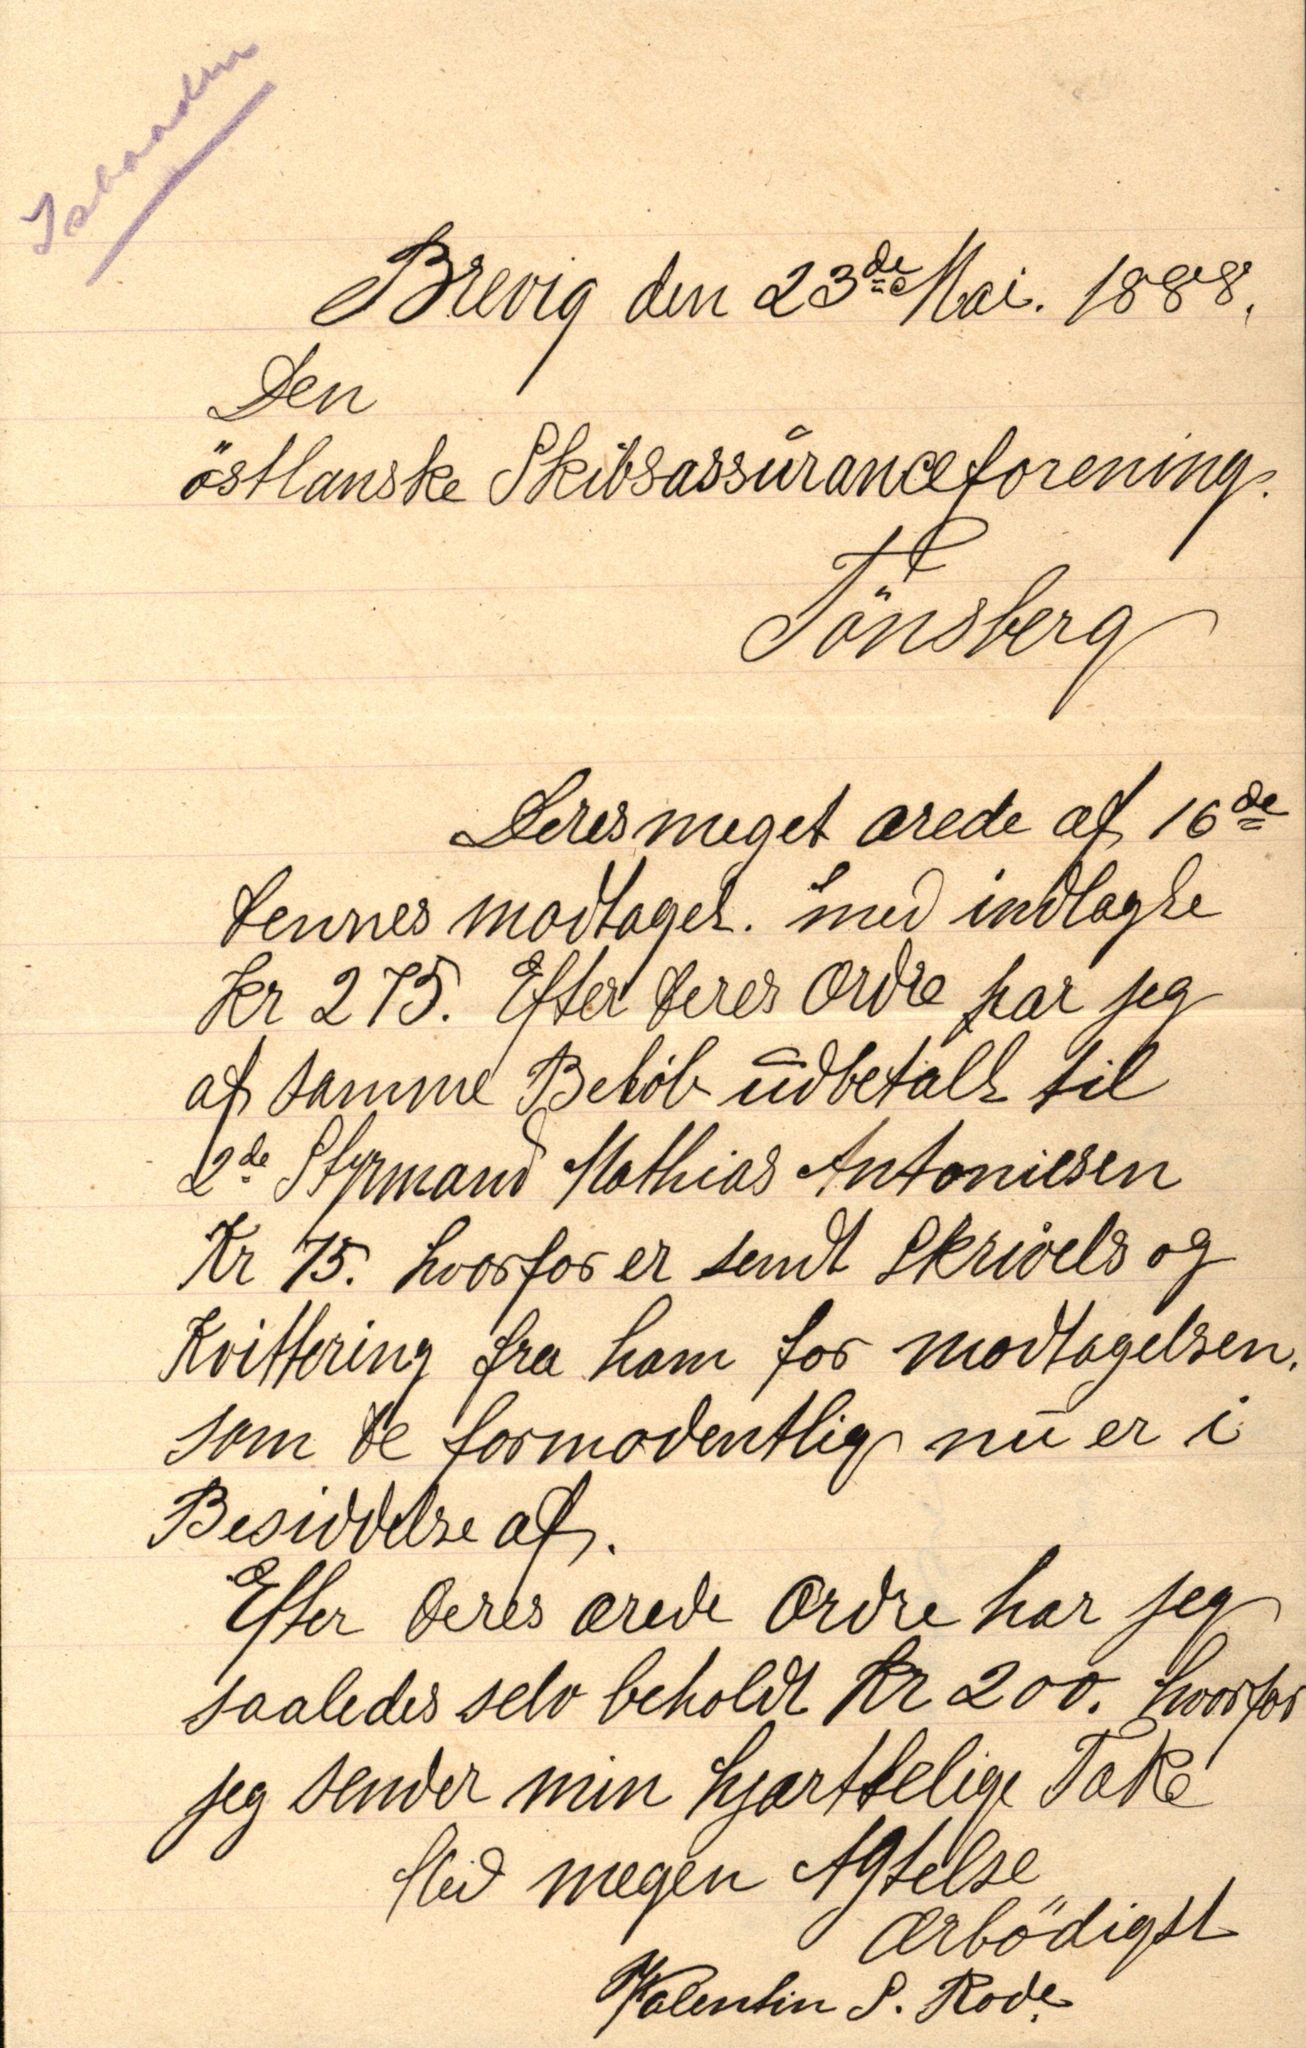 Isbaaden
Brevig den 23de Mai. 1888.
Den
östlanske Skibsassüranceforening.
Tönsberg
Deres meget ærede af 16de
dennes modtaget. med indlagte
Kr 275. Efter deres Ordre har jeg
af samme Belöb üdbetalt til
2de Styrmand Mathias Antoniesen
Kr 75. hvorfor er sendt Skrivels og
Kvittering fra ham for modtagelsen.
som de formodentlig nü er i
Besiddelse af.
Efter deres ærede Ordre har jeg
saaledes selv beholdt Kr 200. hvorfor
jeg sender min hjærttelige Tak
Med megen Agtelse
Ærbödigst
Valentin S. Rode.